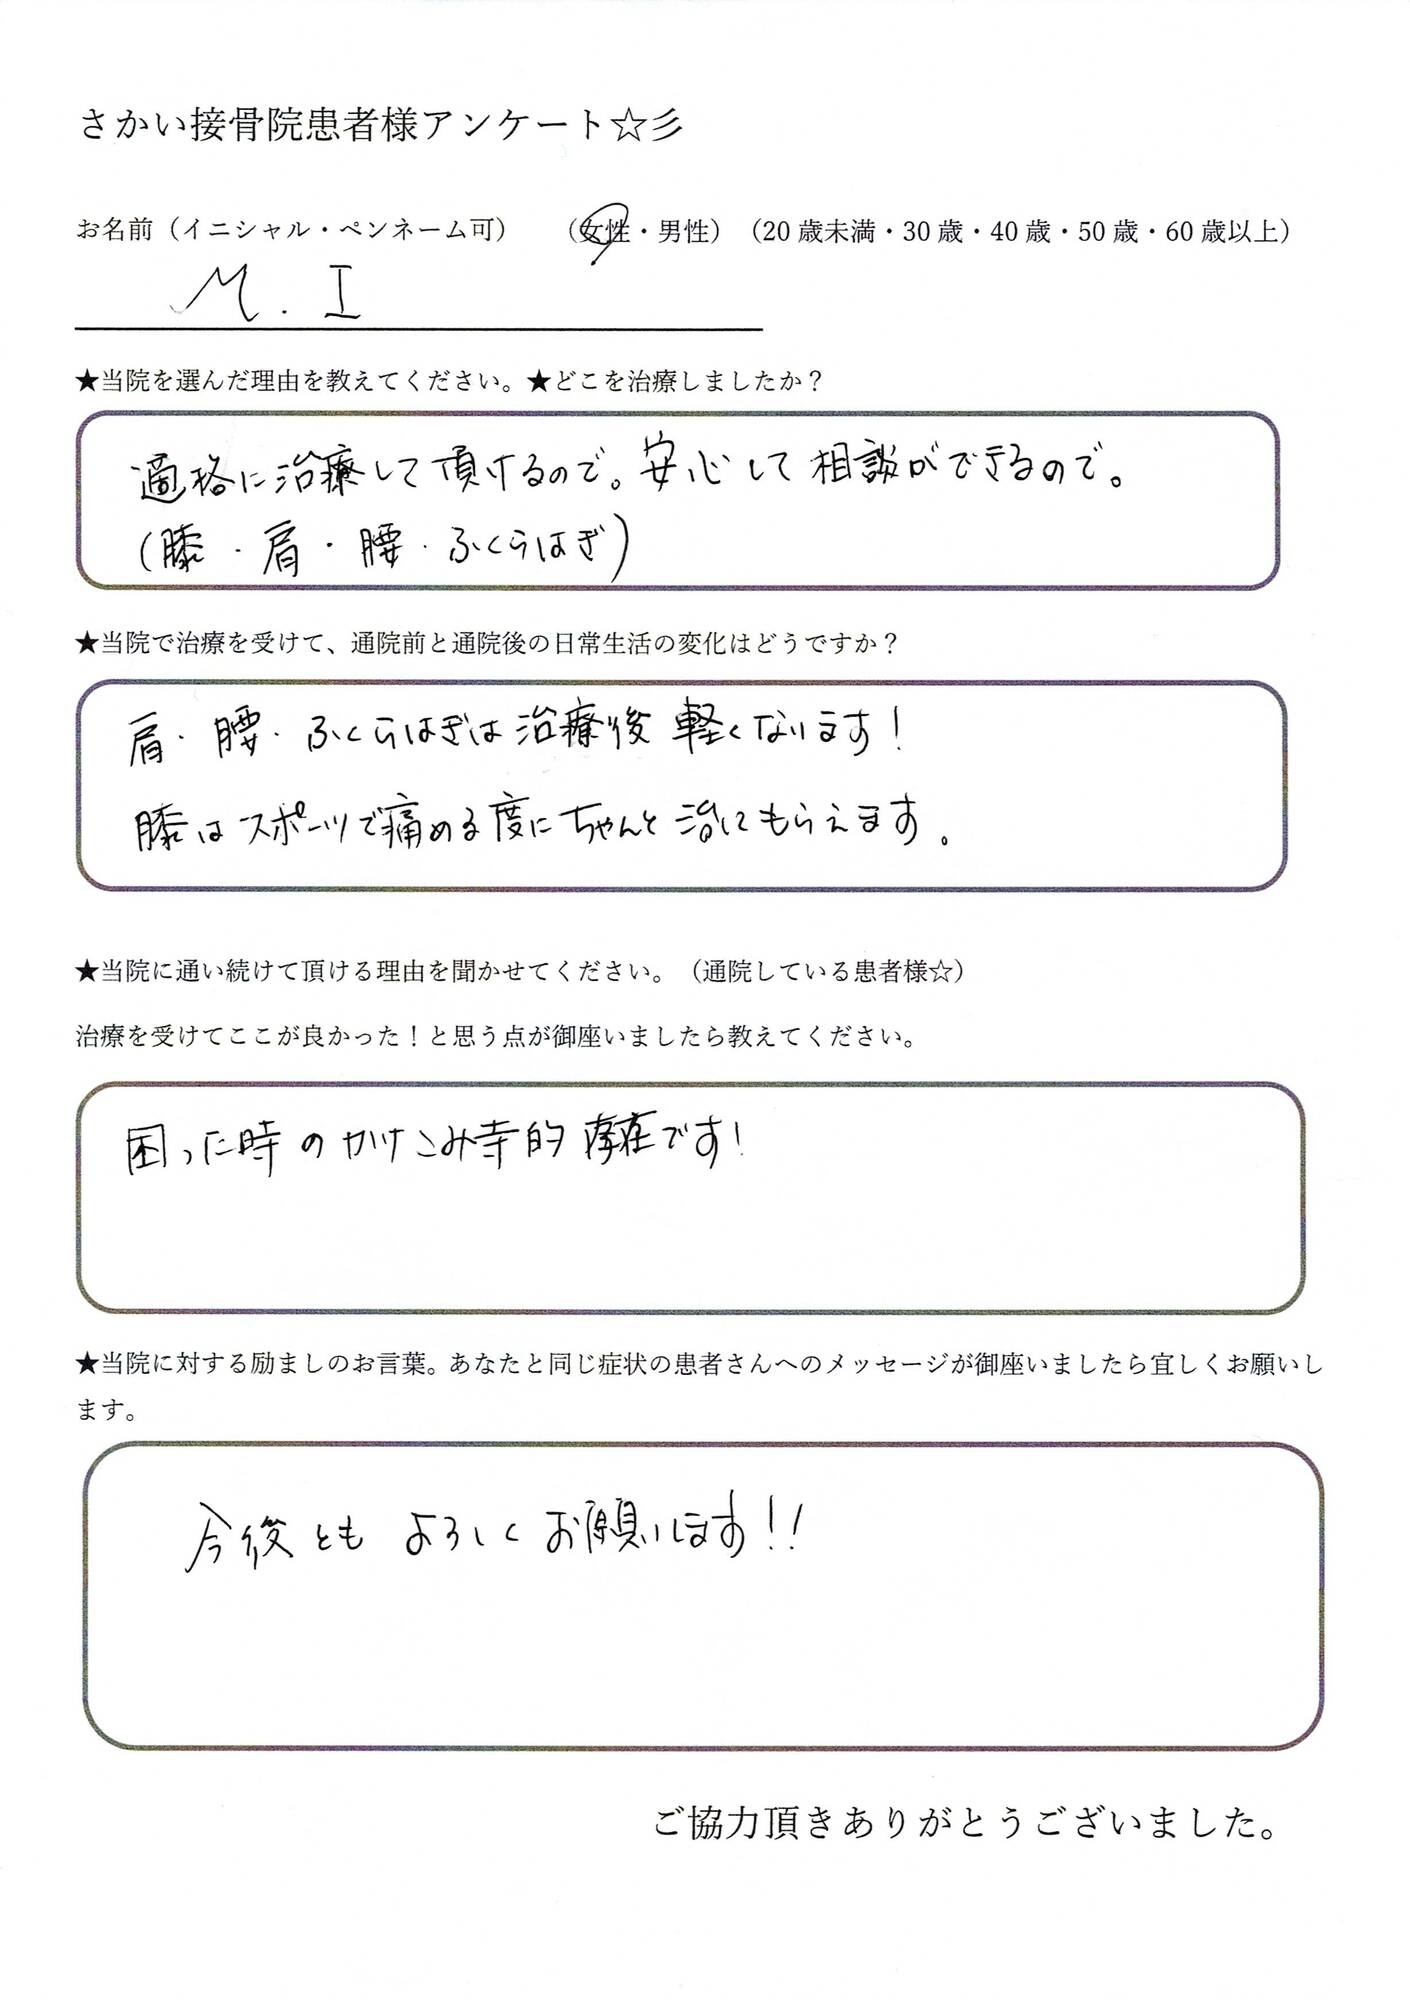 さかい接骨院患者様アンケート☆彡
お名前（イニシャル・ペンネーム可）　（女性・男性）（20歳未満・30歳・40歳・50歳・60歳以上）
M.I
★当院を選んだ理由を教えてください。★どこを治療しましたか？
適格に治療して頂けるので。安心して相談ができるので。
(膝・肩・腰・ふくらはぎ)
★当院で治療を受けて、通院前と通院後の日常生活の変化はどうですか？
肩・腰・ふくらはぎは治療後軽くなります！
膝はスポーツで痛める度にちゃんと治してもらえます。
★当院に通い続けて頂ける理由を聞かせてください。（通院している患者様☆）
治療を受けてここが良かった！と思う点が御座いましたら教えてください。
困った時のかけこみ寺的存在です！
★当院に対する励ましのお言葉。あなたと同じ症状の患者さんへのメッセージが御座いましたら宜しくお願いし
ます。
今後ともよろしくお願いします!!
ご協力頂きありがとうございました。